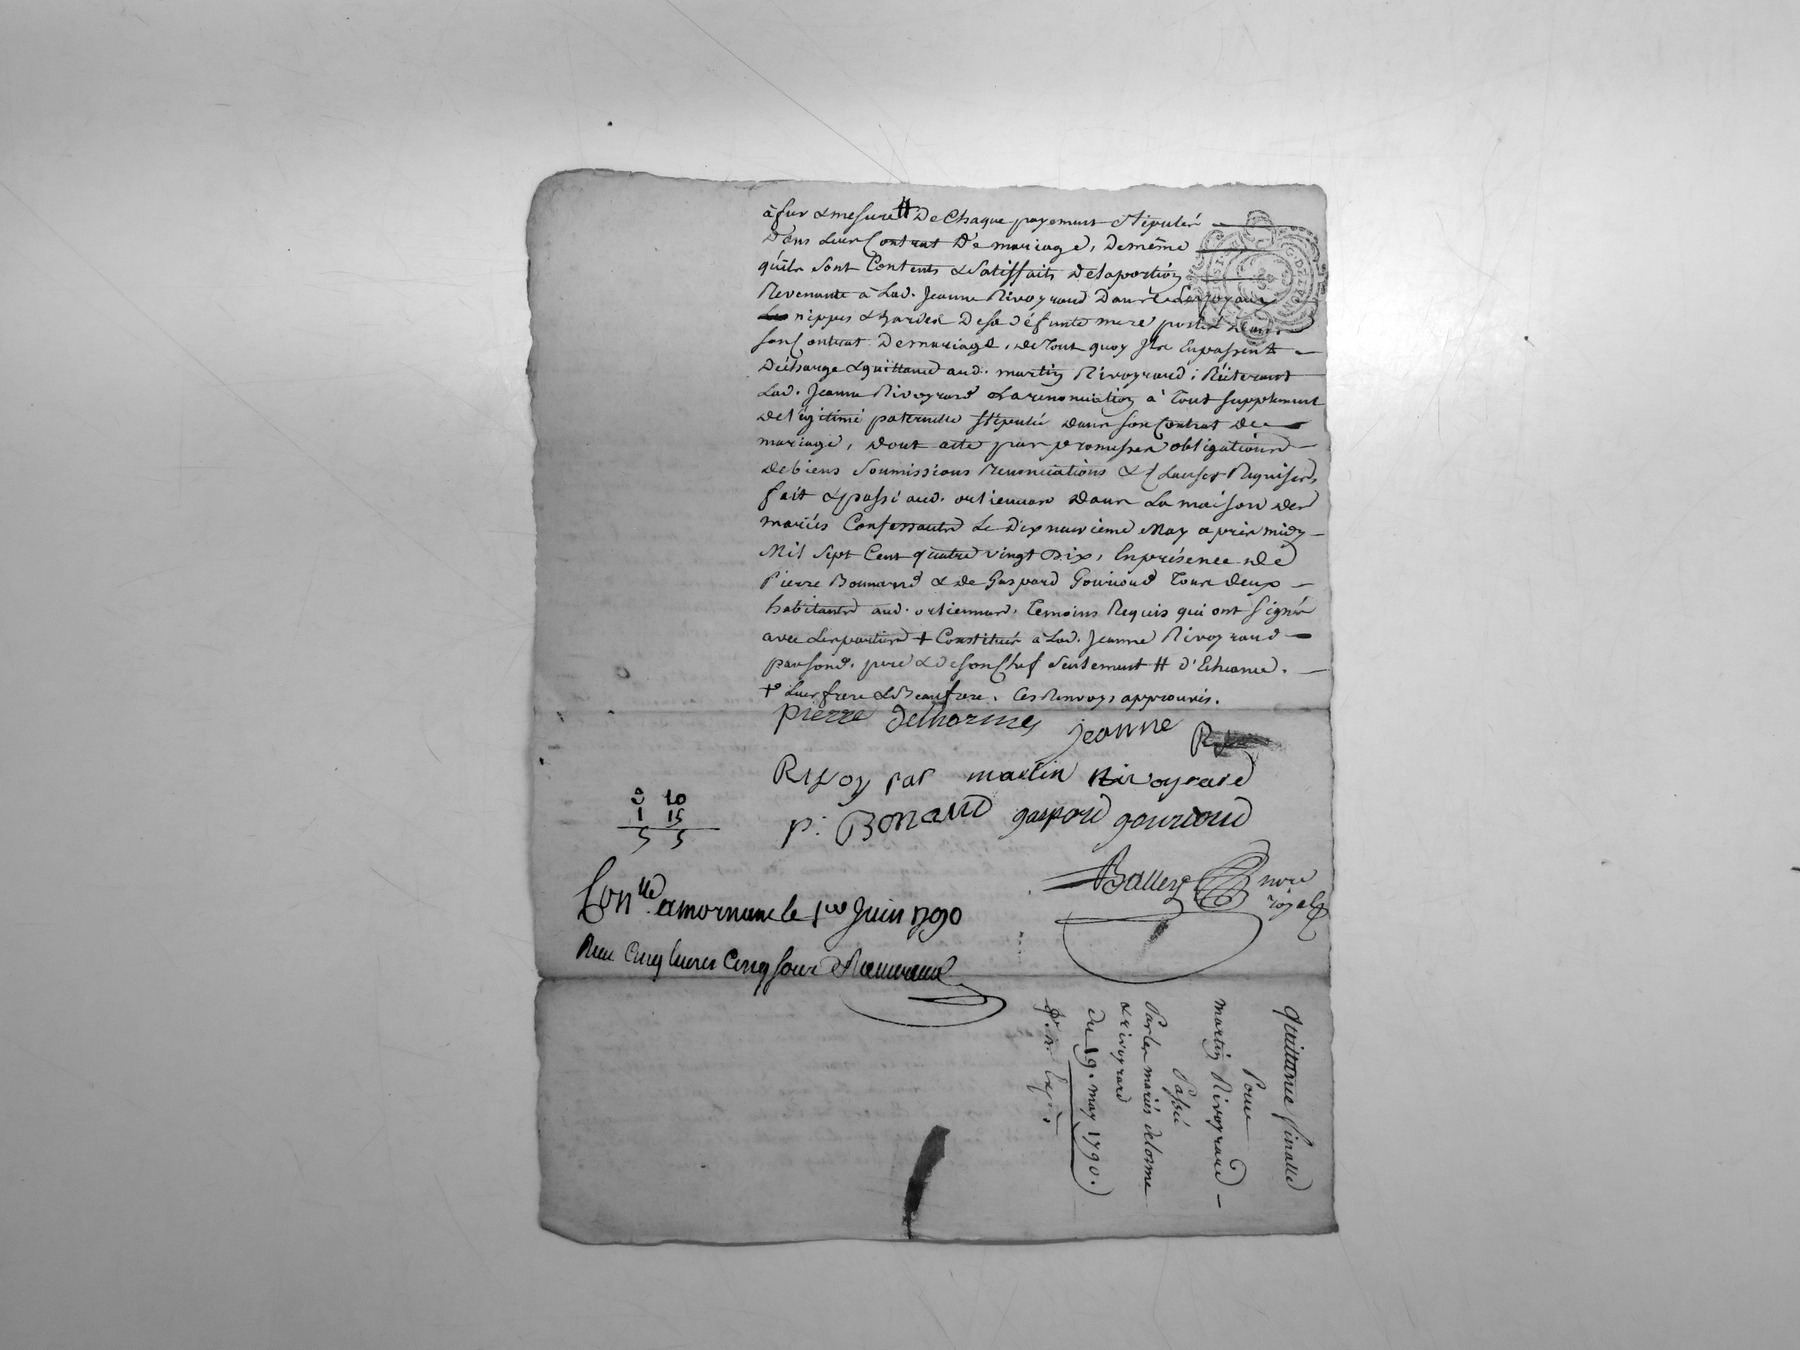 à fur & mesure # De Chaque payement stipulés
Dans Leur Contrat De mariage, Demême
qu'ils sont Contents & satisfaits de la portion
Revenante à Lad. Jeanne Rivoyrard Dans les joyaux
nippes & hardes De sa défunte mere portés dans
son Contrat De mariage, de Tout quoy Ils En passent
Décharge & quittance aud. martin Rivoyrard; Réiterant
Lad. Jeanne Rivoyrard La renonciation à Tout supplement
De légitime paternelle stipulée dans son Contrat de
mariage, dont acte par promesses obligations
de biens soumissions renonciations & Clauses Requises,
fait & passé aud. orliennas dans La maison des
mariés Confessants Le Dix neuvieme May après midy
Mil Sept Cent quatre vingt Dix, En présence de
Pierre Bonnand & de Gaspard Gouroud Tous deux
habitants aud. orliennas, Temoins Requis qui ont signés
avec Les parties + Constitués à Lad. Jeanne Rivoyrard
par sond. pere & de son Chef seulement # d'Echeance.
+ Leur frere & Beaufrere. Ces Renvoys approuvés.
pierre delhorme jeanne
Rivoy rar martin Rivoyrard
p: Bonand gaspard gouroud
3 10
1 15
5 5
Ballezs nore royal
Con.lle a mornant le 1er Juin 1790
Reçu Cinq livres Cinq sous
quittance finalle
Pour
martin Rivoyrard
Passée
Par les mariés delorme
& rivoyrard
du 19. may 1790.